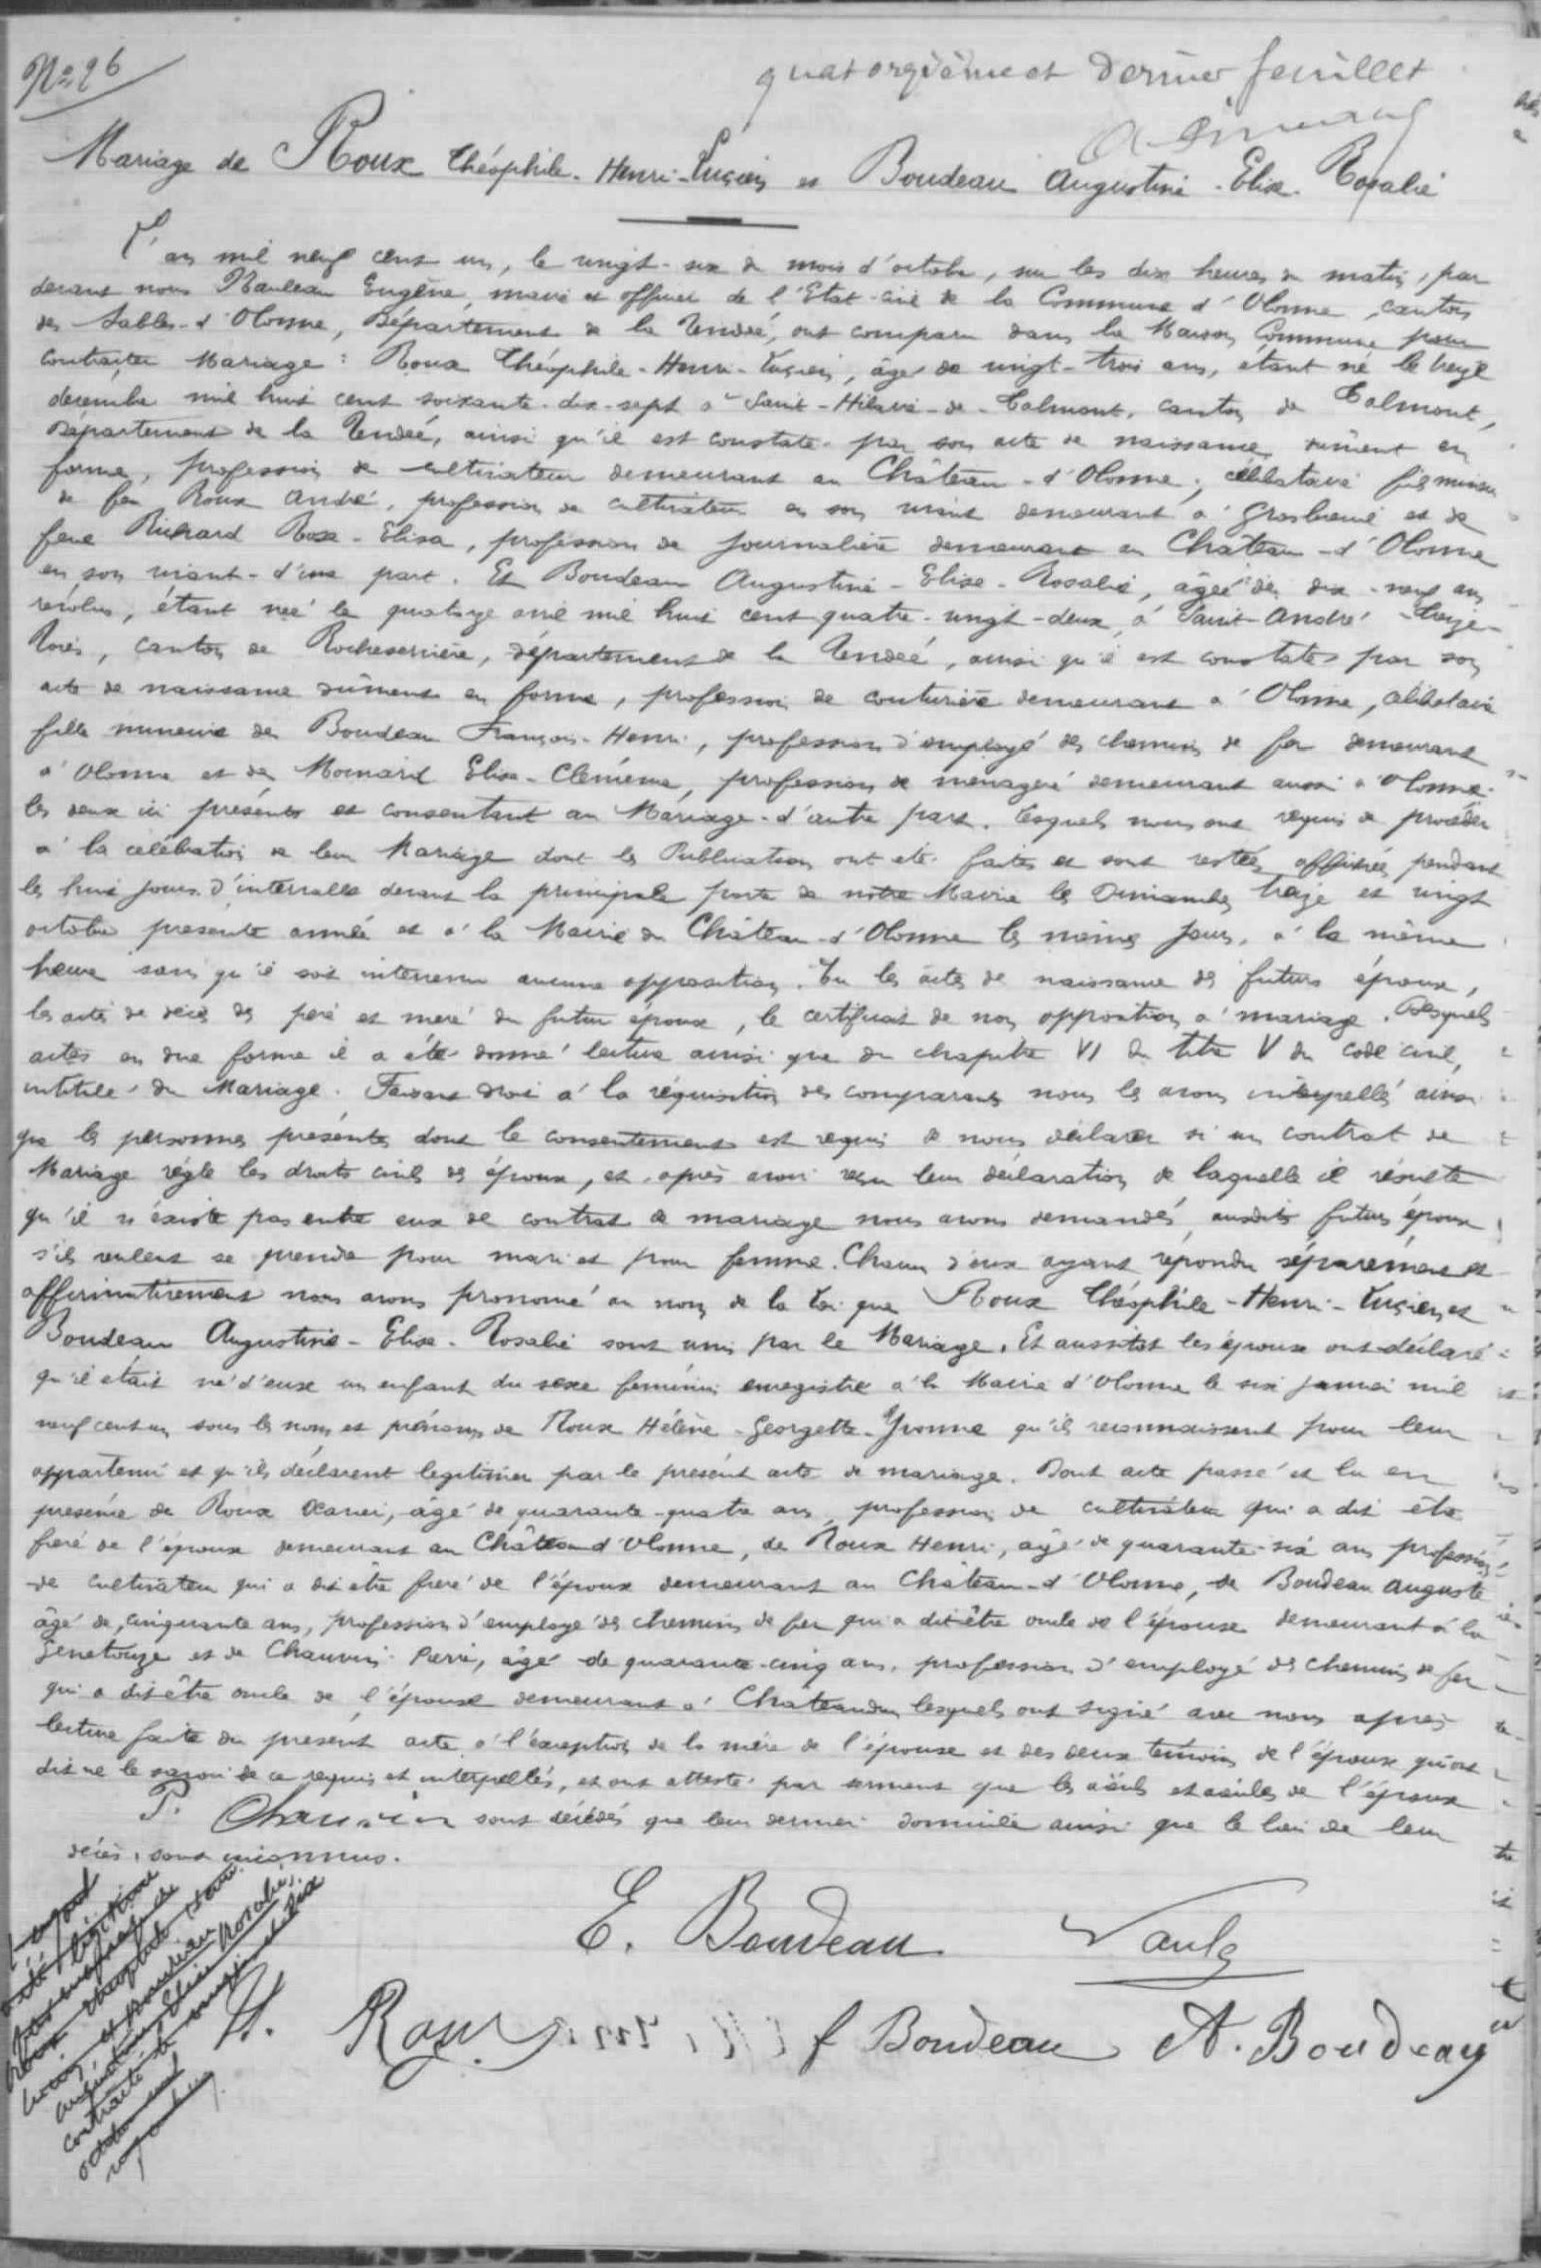 N° 26
quatorzième et dernier feuillet
Mariage de Roux Théophile-Henri-Lucien et Boudeau Augustine-Elise-Rosalie
L'an mil neuf cent un, le vingt-six du mois d'octobre, sur les dix heures du matin, par
devant nous Eugène, maire et officier de l'Etat-civil de la Commune d'Olonne, canton
des Sables-d'Olonne, Département de la Vendée, ont comparu dans la Maison Commune pour
contracter Mariage : Roux Théophile-Henri-Lucien, âgé de vingt-trois ans, étant né le treize
décembre mil huit cent soixante-dix-sept à Saint-Hilaire-de-Talmont, canton de Talmont,
Département de la Vendée, ainsi qu'il est constaté par son acte de naissance dûment en
forme, profession de cultivateur demeurant au Château-d'Olonne, célibataire fils mineur
de feu Roux André, profession de cultivateur en son vivant demeurant à Grosbreuil et de
feue Richard Rose-Elisa, profession de journalière demeurant au Château-d'Olonne
en son vivant-d'une part. Et Boudeau Augustine-Elise-Rosalie, âgée de dix-neuf ans
révolus, étant née le quatorze avril mil huit cent quatre-vingt-deux à Saint-André-Treize-
Voies, canton de Rocheservière, département de la Vendée, ainsi qu'il est constaté par son
acte de naissance dûment en forme, profession de couturière demeurant à Olonne, célibataire
fille mineure de Boudeau François-Henri, profession d'employé des chemins de fer demeurant
à Olonne et de Moinard Elise-Clémence, profession de ménagère demeurant aussi à Olonne
les deux ici présents et consentant au Mariage-d'autre part. Lesquels nous ont requis de procéder
à la célébration de leur Mariage dont les Publications ont été faites et sont restées affichées pendant
les huit jours d'intervalle devant la principale porte de notre Mairie les Dimanches treize et vingt
octobre présente année et à la Mairie du Château-d'Olonne les mêmes jours, à la même
heure sans qu'il soit intervenu aucune opposition. Vu les actes de naissance des futurs époux,
les actes de décès des père et mère du futur époux, le certificat de non opposition à mariage. Desquels
actes en due forme il a été donné lecture ainsi que du chapitre VI du titre V du code civil,
intitulé du Mariage. Faisant droit à la réquisition des comparants nous les avons interpellés ainsi
que les personnes présentes dont le consentement est requis de nous déclarer si un contrat de
Mariage règle les droits civils des époux, et après avoir reçu leur déclaration de laquelle il résulte
qu'il n'existe pas entre eux de contrat de mariage nous avons demandés auxdits futurs époux
s'ils veulent se prendre pour mari et pour femme. Chacun d'eux ayant répondu séparément et
affirmativement nous avons prononcé au nom de la Loi que Roux Théophile-Henri-Lucien et
Boudeau Augustine-Elise-Rosalie sont unis par le Mariage. Et aussitôt les époux ont déclaré
qu'il était né d'eux un enfant du sexe féminin enregistré à la Mairie d'Olonne le six janvier mil
neuf cent un sous les nom et prénoms de Roux Hélène-Georgette-Yvonne qu'ils reconnaissent pour leur
appartenir et qu'ils déclarent légitimer par le présent acte de mariage. Dont acte passé et lu en
présence de Roux Xavier, âgé de quarante-quatre ans, profession de cultivateur qui a dit être
frère de l'époux demeurant au Château d'Olonne, de Roux Henri, âgé de quarante-six ans profession
de cultivateur qui a dit être frère de l'époux demeurant au Château-d'Olonne, de Boudeau Auguste
âgé de cinquante ans, profession d'employé des chemins de fer qui a dit être oncle de l'épouse demeurant à la
Genetouze et de Chauvin Pierre, âgé de quarante-cinq ans, profession d'employé des chemins de fer
qui a dit être oncle de l'épouse demeurant à Chateaudun lesquels ont signé avec nous après
lecture faite du présent acte à l'exception de la mère de l'épouse et des deux témoins de l'époux qui ont
dit ne le savoir de ce requis et interpellés, et ont attesté par serment que les aïeuls et aïeules de l'époux
P. Chauvin sont décédés que leur dernier domicile ainsi que le lieu de leur
décès, sont inconnus.
E. Boudeau
H. Roux f Boudeau A. Boudeau